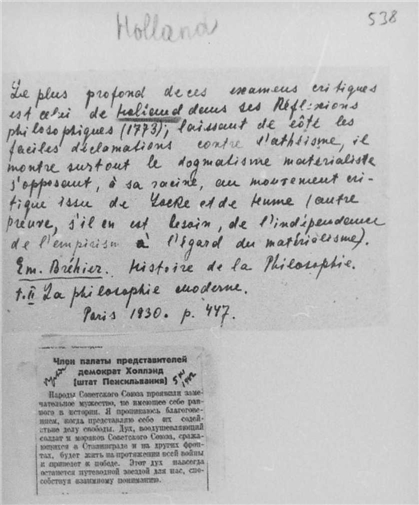 Holland
538
Le plus profond de ces examens critiques
est celui de Holland dans ses Réflexions
philosophiques (1773); laissant de côté les
faciles déclamations contre l'athéisme, il
montre surtout le dogmatisme matérialiste
s'opposant, à sa racine, au mouvement cri-
tique issu de Locke et de Hume (autre
preuve, s'il en est besoin, de l'indépendance
de l'empirism à l'égard du matérialisme).
Em. Bréhier. Histoire de la Philosophie.
t. II La philosophie moderne.
Paris 1930. p. 447.
Член палаты представителей
демократ Холлэнд
(штат Пенсильвания)
1942
Народы Советского Союза проявили заме-
чательное мужество, не имеющее себе рав-
ного в истории. Я проникаюсь благогове-
нием, когда представляю себе их содей-
ствие делу свободы. Дух, воодушевляющий
солдат и моряков Советского Союза, сража-
ющихся в Сталинграде и на других фрон-
тах, будет жить на протяжении всей войны
и приведет к победе. Этот дух навсегда
останется путеводной звездой для нас, спо-
собствуя взаимному пониманию.